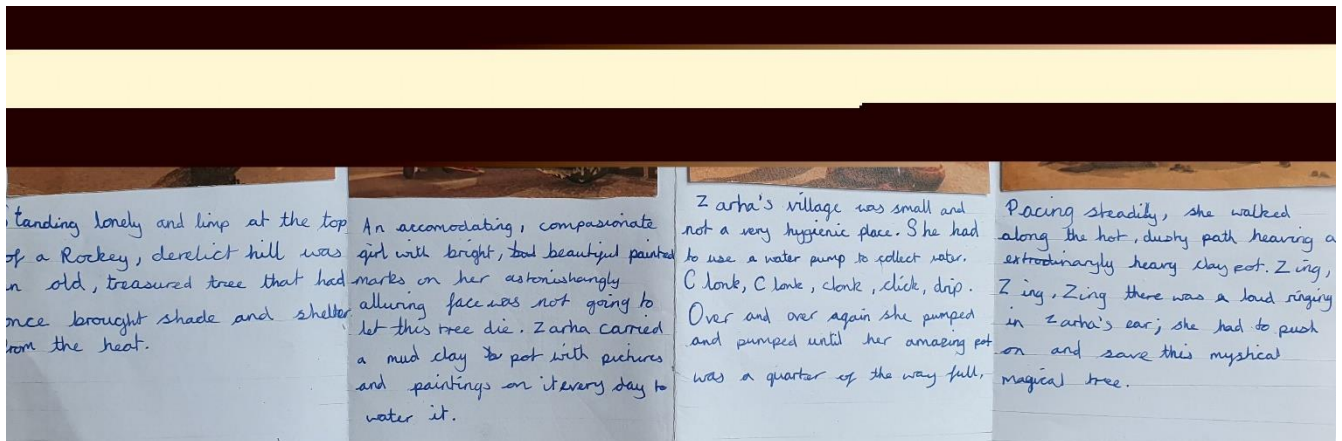 tanding lonely and limp at the top
of a Rockey, derelict hill was
n old, treasured tree that had
once brought shade and shelter
from the heat.
An accomodating, compasionate
girl with bright, beautiful painted
marks on her astonishangly
alluring face was not going to
let this tree die. Zarha carried
a mud clay pot with pichures
and paintings on it every day to
water it.
Zarha's village was small and
not a very hygienic place. She had
to use a water pump to collect water.
Clonk, Clonk, clonk, click, drip.
Over and over again she pumped
and pumped until her amazing pot
was a quarter of the way full.
Pacing steadily, she walked
along the hot, dusty path heaving a
extrodinaryly heavy clay pot. Zing,
Zing, Zing there was a loud ringing
in Zarha's ear; she had to push
on and save this mystical
magical tree.